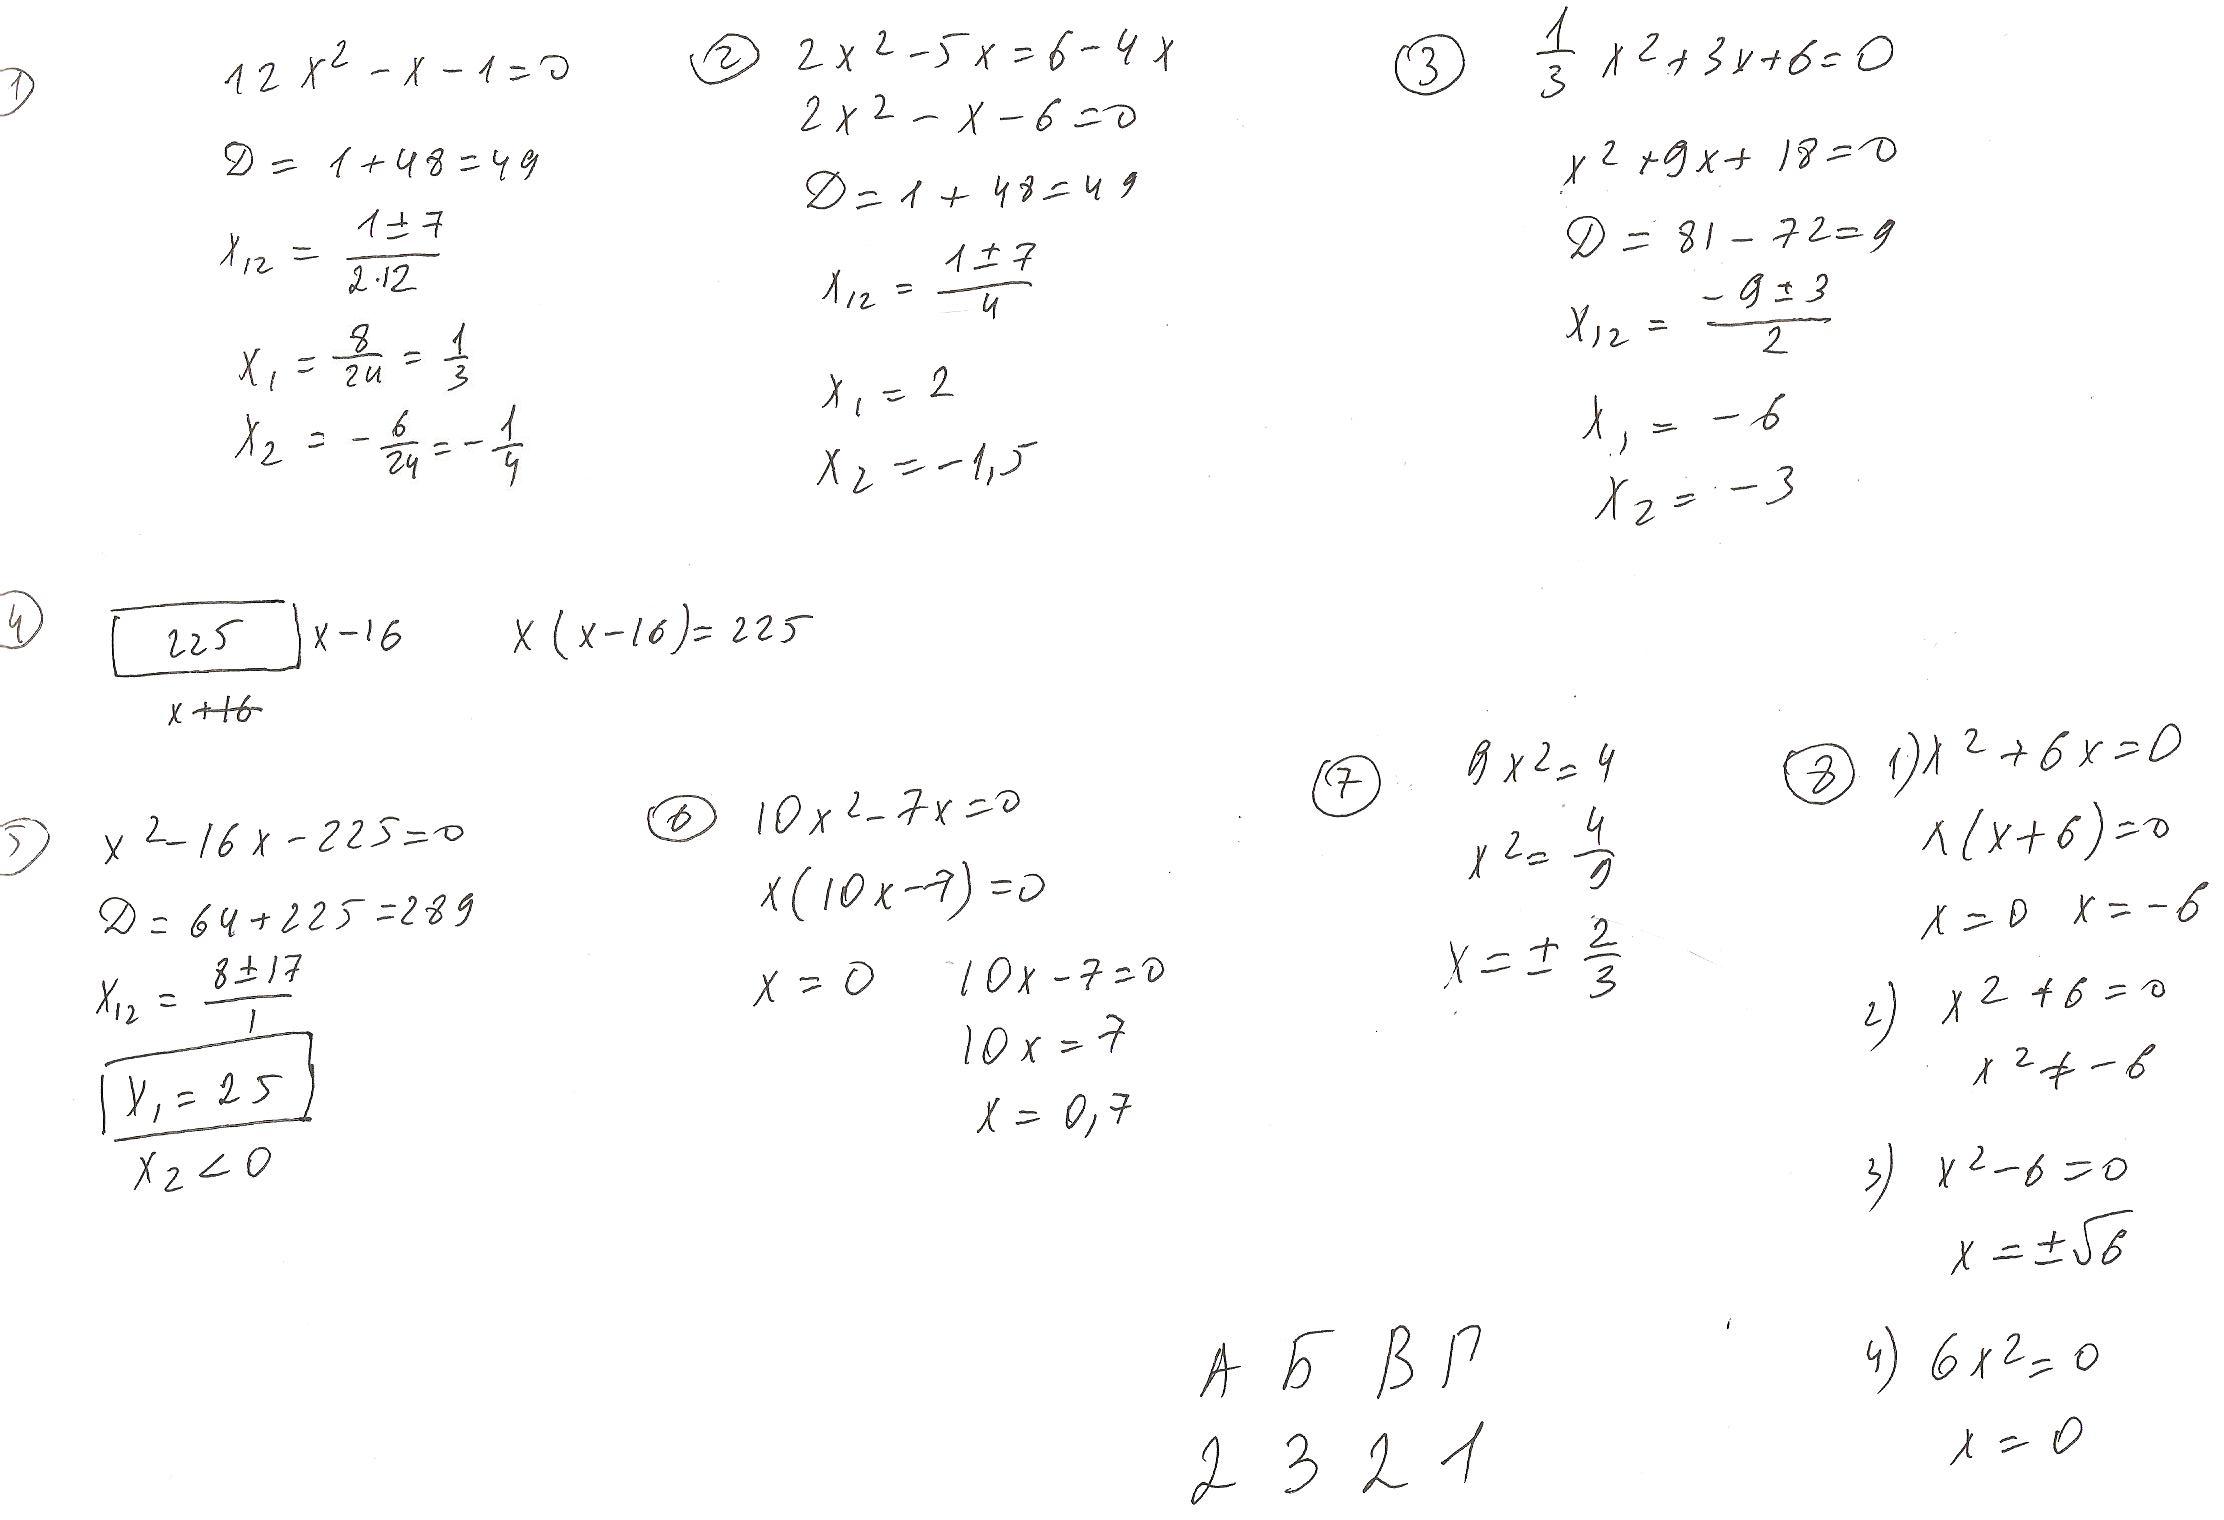 ①
12x² - x - 1 = 0
D = 1 + 48 = 49
x₁₂ = (1 ± 7)/(2·12)
x₁ = 8/24 = 1/3
x₂ = -6/24 = -1/4
②
2x² - 5x = 6 - 4x
2x² - x - 6 = 0
D = 1 + 48 = 49
x₁₂ = (1 ± 7)/4
x₁ = 2
x₂ = -1,5
③
1/3 x² + 3x + 6 = 0
x² + 9x + 18 = 0
D = 81 - 72 = 9
x₁₂ = (-9 ± 3)/2
x₁ = -6
x₂ = -3
④
225 x - 16 x(x - 16) = 225
x + 16
⑤
x² - 16x - 225 = 0
D = 64 + 225 = 289
x₁₂ = (8 ± 17)/1
x₁ = 25
x₂ < 0
⑥
10x² - 7x = 0
x(10x - 7) = 0
x = 0 10x - 7 = 0
10x = 7
x = 0,7
⑦
9x² = 4
x² = 4/9
x = ± 2/3
⑧
1) x² + 6x = 0
x(x + 6) = 0
x = 0 x = -6
2) x² + 6 = 0
x² ≠ -6
3) x² - 6 = 0
x = ±√6
4) 6x² = 0
x = 0
А Б В Г
2 3 2 1